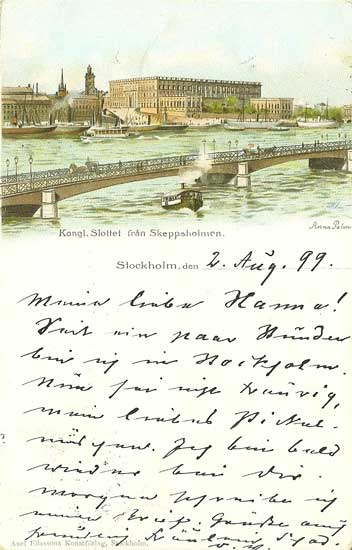 Kongl. Slottet från Skeppsholmen.
Anna Palm
Stockholm, den 2. Aug. 99.
Meine liebe Hanna!
Seit ein paar Stunden
bin ich in Stockholm.
Nun sei nicht traurig,
mein liebes
Ich bin bald
wieder bei dir.
Morgen schreibe ich
einen Brief. Grüße auch
Fräulein
Axel Eliassons Konstförlag, Stockholm.